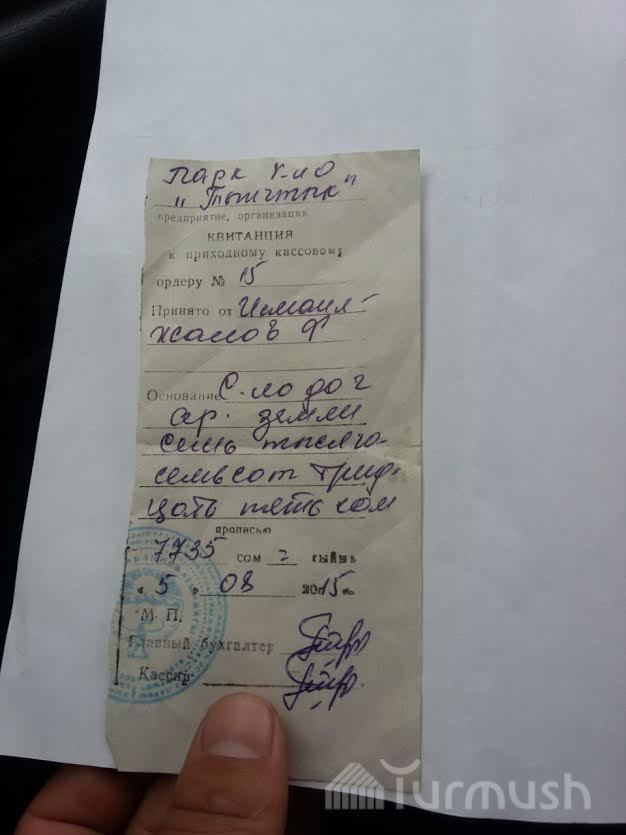 парк к-ло
"Тынчтык"
предприятие, организация
КВИТАНЦИЯ
к приходному кассовому
ордеру № 15
Принято от Исмаил-
жанов Ф
Основание С-но дог
ар. земли
семь тысяч
семьсот трид-
цать пять сом
прописью
7735 сом 2 тыйын
" 5 " 08 2015 г.
М. П.
Главный бухгалтер
Кассир
Turmush